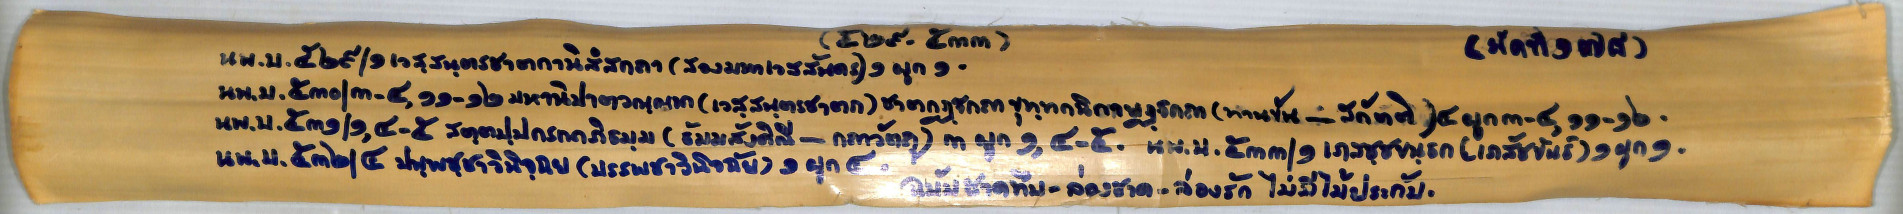 (๕๒๙. ๕๓๓) (มัดที่ ๑๗๕)
นพ.บ. ๕๒๙/๑ เวสฺสนฺตรชาตกานิสํสกถา (สองมหาเวสสันดร) ๑ ผูก ๑.
นพ.บ. ๕๓๐/๓-๔, ๑๑-๑๒ มหานิปาตวณฺณนา (เวสฺสนฺตรชาตก) ชาตกฏฺฐกถา ขุทฺทกนิกายฏฺฐกถา (ทานขันธ์ – สักกติ) ๔ ผูก ๓-๔, ๑๑-๑๒.
นพ.บ. ๕๓๑/๑, ๔-๕ สตฺตปฺปกรณาภิธมฺม (ธัมมสังคิณี – กถาวัตถุ) ๓ ผูก ๑, ๔-๕. นพ.บ. ๕๓๓/๑ เภสชฺชขนฺธก (เภสัชขันธ์) ๑ ผูก ๑.
นพ.บ. ๕๓๒/๔ ปพฺพชฺชาวินิจฺฉย (บรรพชาวินิจฉัย) ๑ ผูก ๔.
ฉบับชาดทึบ - ล่องชาด - ล่องรัก ไม่มีไม้ประกับ.